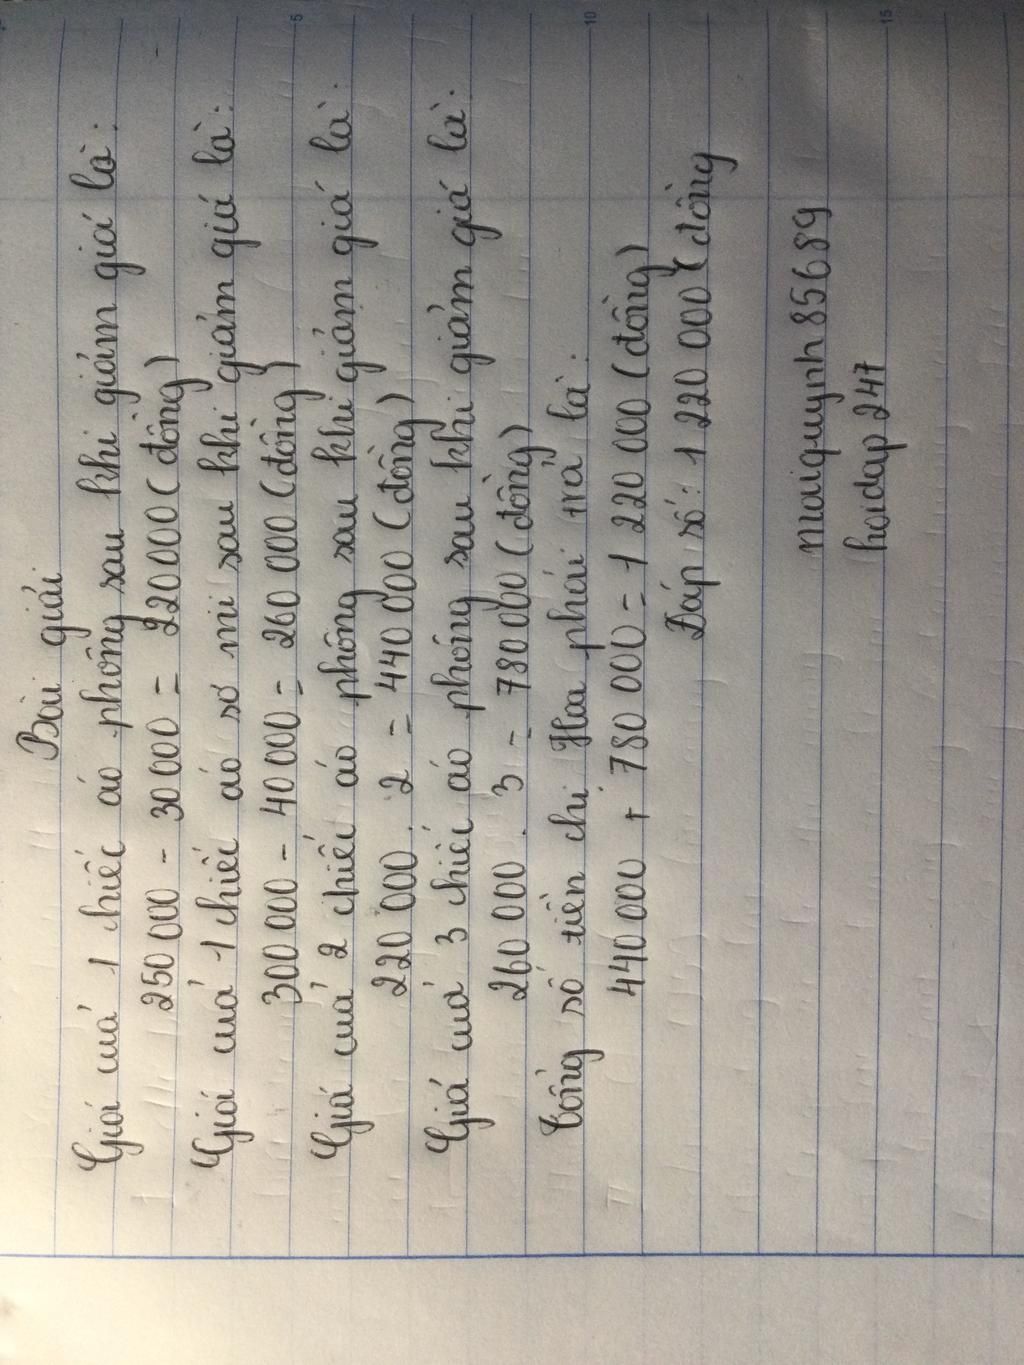 Bài giải
Giá cuả 1 chiếc áo phông sau khi giảm giá là:
250 000 - 30 000 = 220 000 (đồng)
Giá cuả 1 chiếc áo sơ mi sau khi giảm giá là:
300 000 - 40 000 = 260 000 (đồng)
Giá cuả 2 chiếc áo phông sau khi giảm giá là:
220 000 . 2 = 440 000 (đồng)
Giá cuả 3 chiếc áo phông sau khi giảm giá là:
260 000 . 3 = 780 000 (đồng)
Tổng số tiền chị Hoa phải trả là:
440 000 + 780 000 = 1 220 000 (đồng)
Đáp số: 1 220 000 (đồng
maiquynh85689
hoidap247
5
10
15